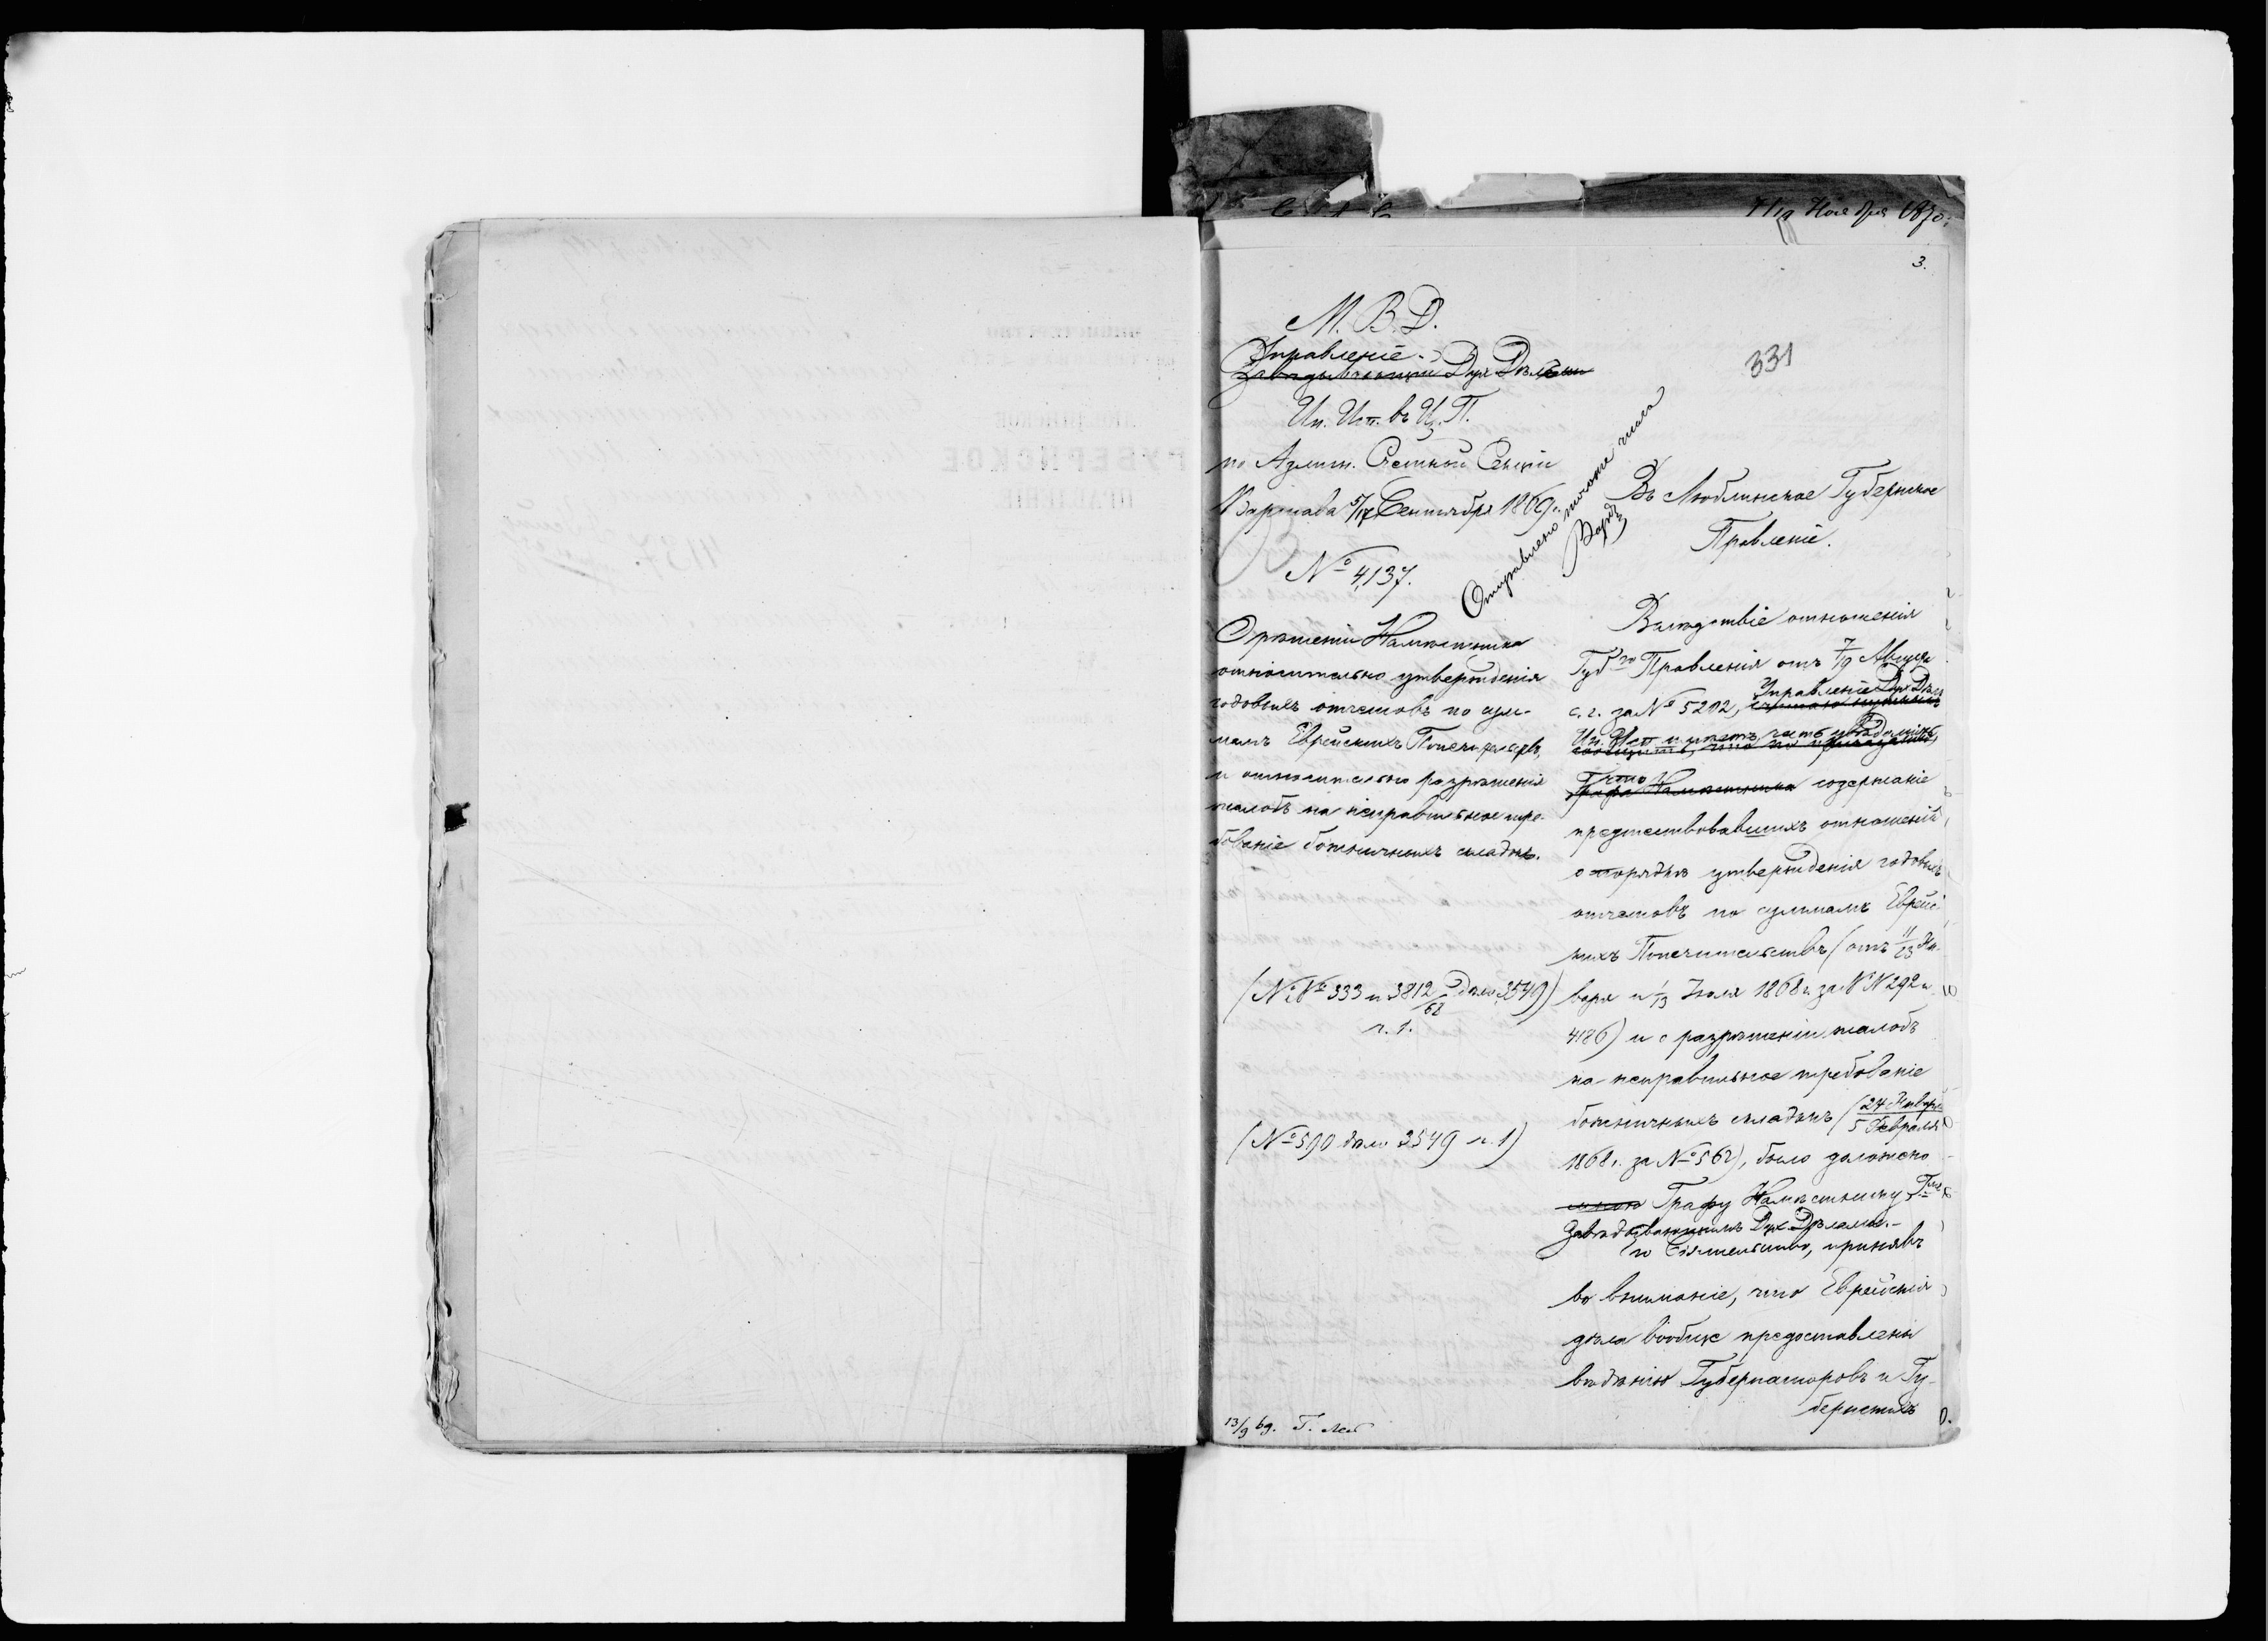 7/19 Ноября 1870.
3.
331
М. В. Д.
Управленіе
Завѣдывающій Дух Дѣлами
Ин. Исп. въ Ц. П.
по Админ. Счетной Секціи
Варшава 5/17 Сентября 1869 г.
№ 4137.
Отправлено того же числа
О рѣшеніи Намѣстника
относительно утвержденія
годовыхъ отчетовъ по сум-
мамъ Еврейскихъ Попечительствъ,
и относительно разрѣшенія
жалобъ на неправильное тре-
бованіе божничныхъ складокъ.
(№№ 333 и 3812/68 дѣло 3549)
ч. 1.
(№ 590 дѣло 3549 ч. 1)
13/9 69.
Въ Люблинское Губернское
Правленіе.
Вслѣдствіе отношенія
Губго Правленія отъ 7/19 Августа
с. г. за № 5202, Управленіе Дух Дѣлъ
Ин. Исп. имѣетъ честь увѣдомить,
что
Графа Намѣстника содержаніе
предшествовавшихъ отношеній,
о порядкѣ утвержденія годовыхъ
отчетовъ по суммамъ Еврейс-
кихъ Попечительствъ (отъ 11/23 Ян-
варя и 1/13 Іюля 1868 г. за №№ 292 и
4186) и о разрѣшеніи жалобъ
на неправильное требованіе
божничныхъ складокъ (24 Января/5 Февраля
1868 г. за № 562), было доложено
мною Графу Намѣстнику
Завѣдывающимъ Дух Дѣлами.
Его Сіятельство, принявъ
во вниманіе, что Еврейскія
дѣла вообще предоставлены
вѣдѣнію Губернаторовъ и Гу-
бернскихъ